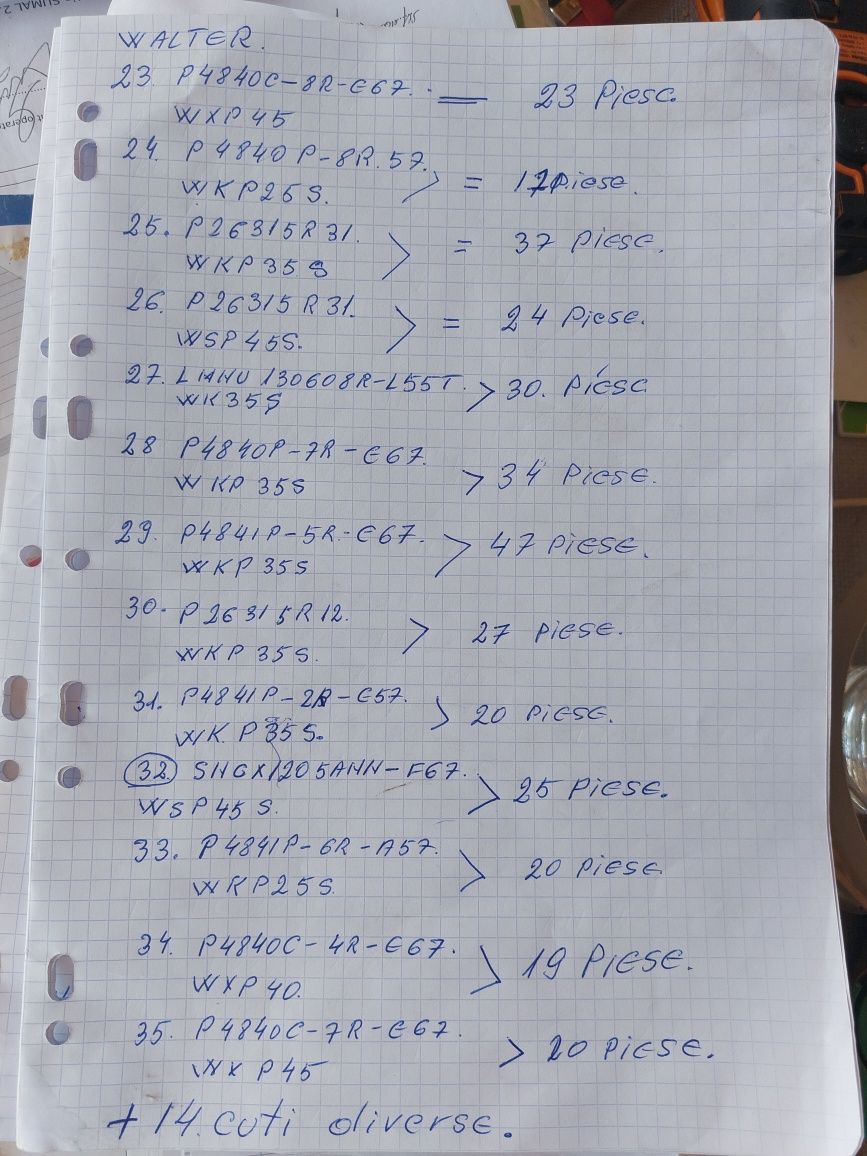 WALTER.
23. P4840C-8R-E67. — 23 Piese.
WXP45
24. P4840P-8R.57.
WKP25S. > = Piese.
25. P26315R31.
WKP35S > = 37 Piese.
26. P26315R31.
WSP45S. > = 24 Piese.
27. 130608R-L55T. > 30. Piese
WK35S
28 P4840P-7R-E67.
WKP 35S > 34 Piese.
29. P4841P-5R-E67.
WKP 35S > 47 Piese.
30. P26315R12.
WKP 35S. > 27 Piese.
31. P4841P-2R-E57.
WK P35S. > 20 Piese.
32 SNGX1205ANN-F67.
WSP45S. > 25 Piese.
33. P4841P-6R-A57.
WKP25S. > 20 Piese
34. P4840C-4R-E67.
WXP40. > 19 Piese.
35. P4840C-7R-E67.
WXP45 > 20 Piese.
+ 14. cuti diverse.